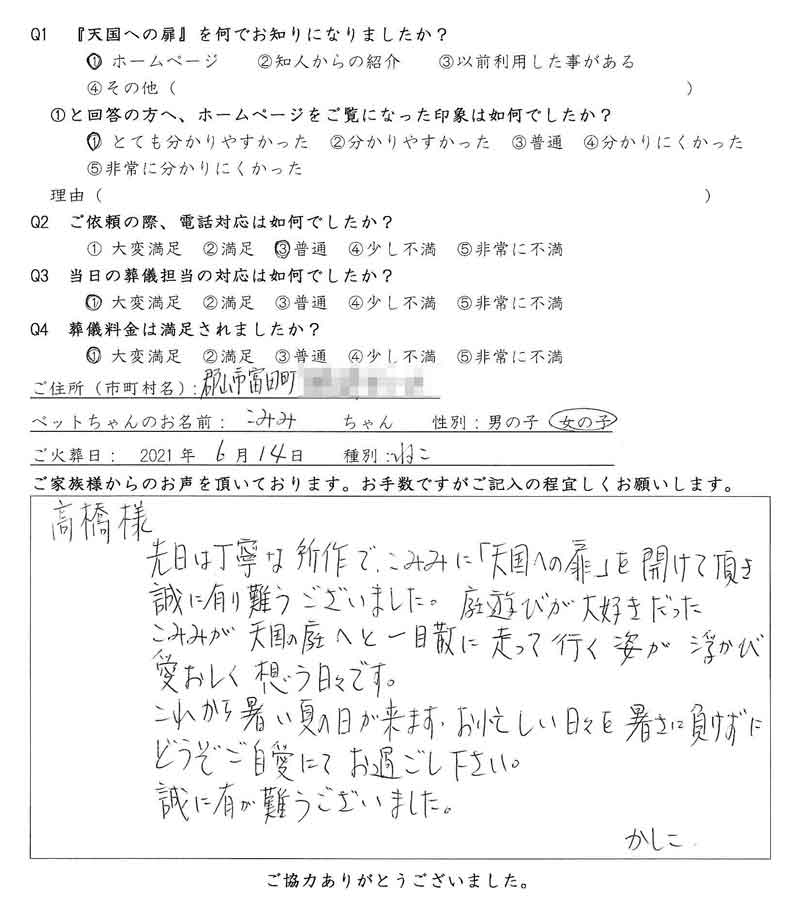 Q1 『天国への扉』を何でお知りになりましたか?
① ホームページ ②知人からの紹介 ③以前利用した事がある
④その他( )
①と回答の方へ、ホームページをご覧になった印象は如何でしたか?
① とても分かりやすかった ②分かりやすかった ③普通 ④分かりにくかった
⑤非常に分かりにくかった
理由( )
Q2 ご依頼の際、電話対応は如何でしたか?
① 大変満足 ②満足 ③普通 ④少し不満 ⑤非常に不満
Q3 当日の葬儀担当の対応は如何でしたか?
① 大変満足 ②満足 ③普通 ④少し不満 ⑤非常に不満
Q4 葬儀料金は満足されましたか?
① 大変満足 ②満足 ③普通 ④少し不満 ⑤非常に不満
ご住所(市町村名):郡山市富田町
ペットちゃんのお名前: こみみ ちゃん 性別:男の子 女の子
ご火葬日: 2021年 6月14日 種別:ねこ
ご家族様からのお声を頂いております。お手数ですがご記入の程宜しくお願いします。
高橋様
先日は丁寧な所作で、こみみに「天国への扉」を開けて頂き
誠に有り難うございました。庭遊びが大好きだった
こみみが天国の庭へと一目散に走って行く姿が浮かび
愛おしく想う日々です。
これから暑い夏の日が来ます、お忙しい日々を暑さに負けずに
どうぞご自愛にてお過ごし下さい。
誠に有が難うございました。
かしこ
ご協力ありがとうございました。